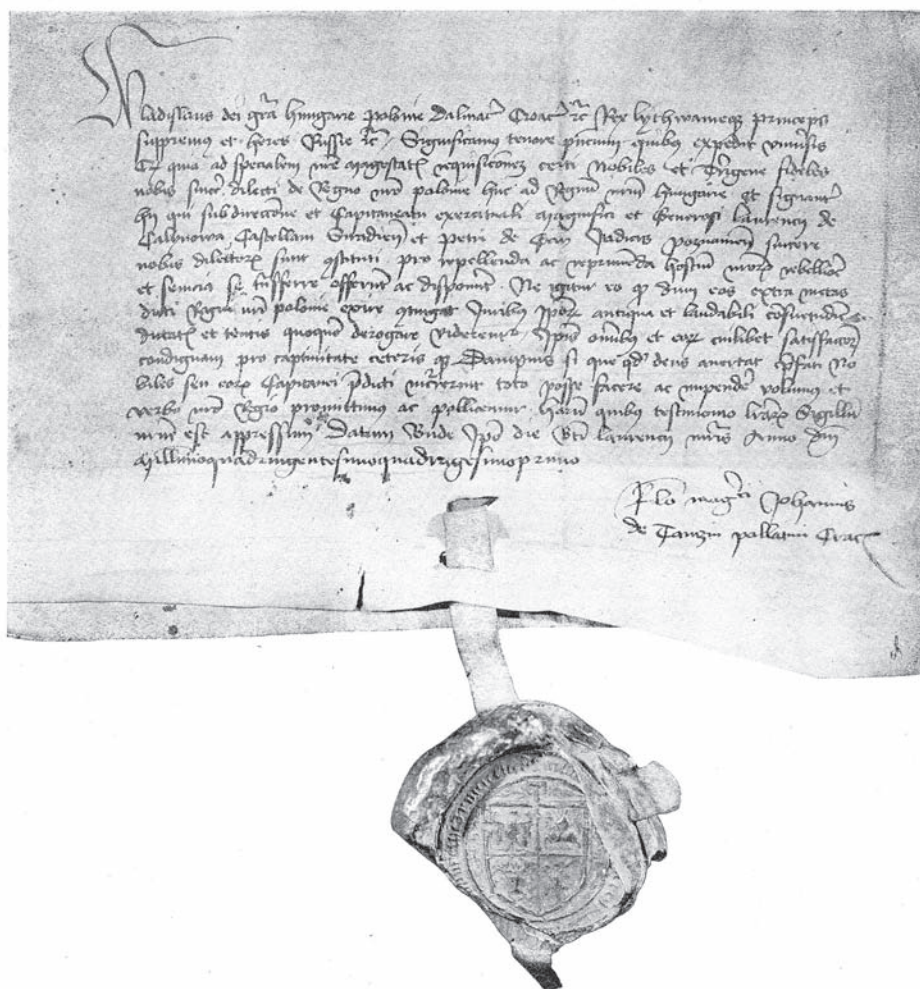 Wladislaus dei gra hungarie polonie Dalmac Croac rc Rex lythwanieqz princeps
supremus et heres Russie rc Significamus tenore pncium quibus expedit vniusis
qua ad specialem nre Magestatis requisiconez certi Nobiles et Terrigene fideles
nobis sincere dilecti de Regno nro polonie huc ad Regnu nrm hungarie et signant
hii qui sub direccione et Capitaneatu exercituali Magnifici et Generosi laurencii de
Calynowa Castellani Siradien et Petri de Judicis poznanien sincere
nobis dilectorum sunt constituti pro repellenda ac reprimenda hostium nrorum rebellioe
et semeta se offerunt ac disponunt Ne igitur eo qz dum eos extra metas
dicti Regni nri polonie exire contingat Juribus antiqua et laudabili consuetudine
ducatis et tentis quoquo derogare videremur Ipsis omnibus et eorum cuilibet satisfaccoem
condignam pro captiuitate ceteris qz Dampnis si que qd deus auertat pfati No
biles seu eorum Capitanei pdicti incurrerint toto posse facere ac impendere volumus et
verbo nro Regio promittimus ac pollicemur harum quibus testimonio lrarum Sigillum
nrm est appressum Datum Bude Ipo die Bti laurencii mris Anno dni
Millimoquadringentesimoquadragesimoprimo
Rlo magci Johannis
de Tanczin pallatini Crac